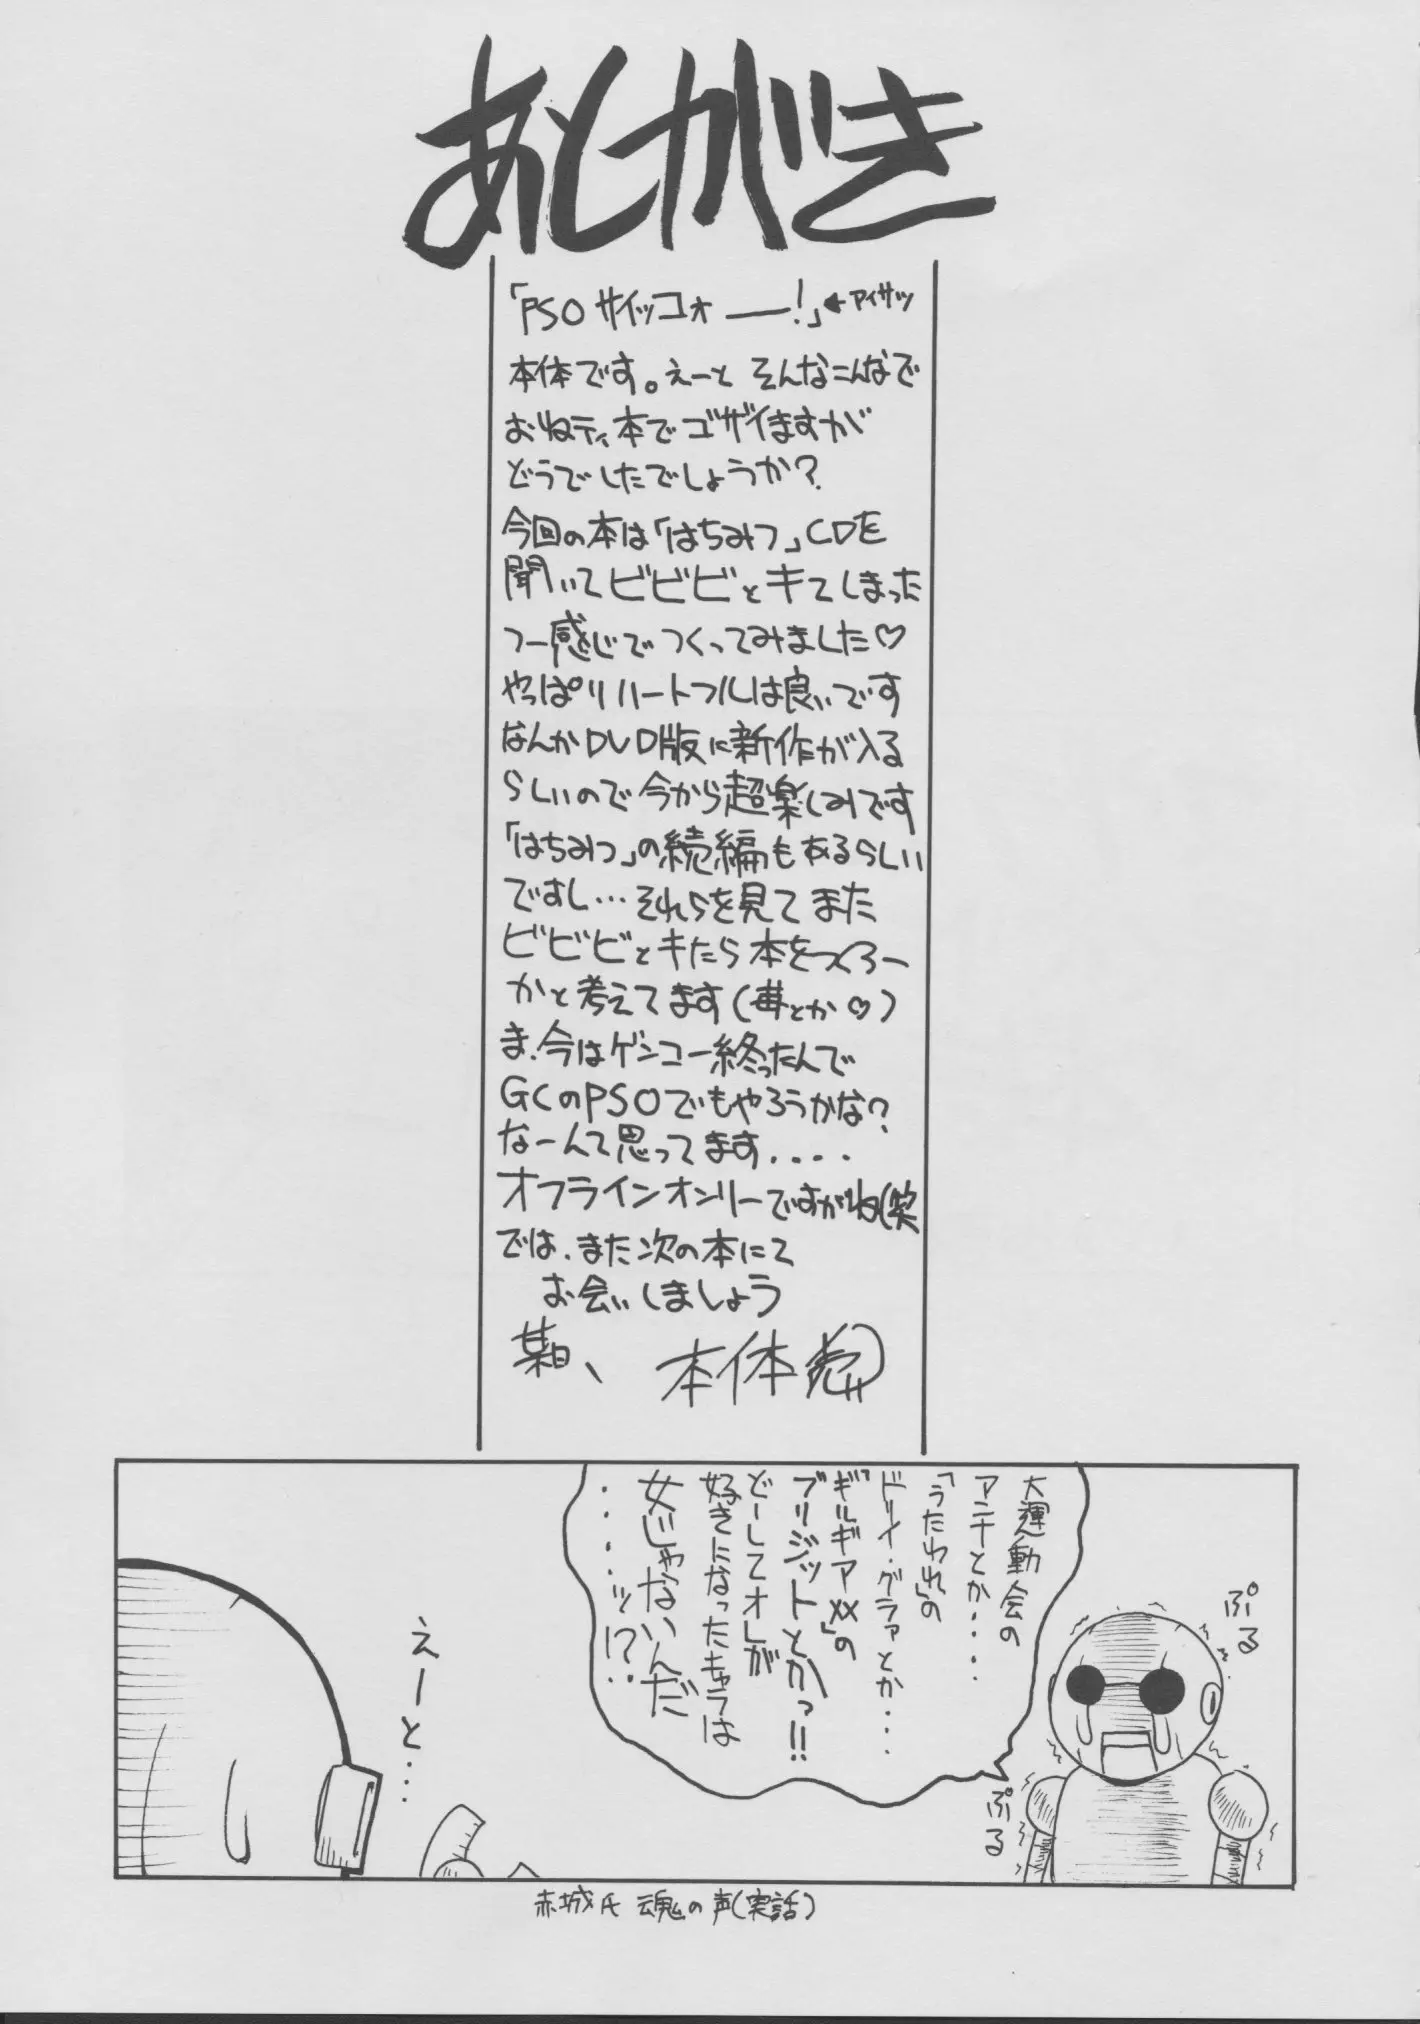 あとがき
「PSO サイッコォ ――!」← アイサツ
本体です。えーと そんなこんなで
おねティ本でゴザイますが
どうでしたでしょうか?
今回の本は「はちみつ」CDを
聞いてビビビとキてしまった
つー感じでつくってみました♡
やっぱりハートフルは良いです
なんかDVD版に新作が入る
らしいので今から超楽しみです
「はちみつ」の続編もあるらしい
ですし…それらを見てまた
ビビビとキたら本をつくろー
かと考えてます(苺とか♡)
ま、今はゲンコー終ったんで
GCのPSOでもやろうかな?
なーんて思ってます....
オフラインオンリーですがね(笑
では、また次の本にて
お会いしましょう
某日、 本体
大運動会の
アニキとか....
「うたわれ」の
ドリィ・グラァとか...
「ギルギアXX」の
ブリジットとかっ!!
どーしてオレが
好きになったキャラは
女じゃないんだ
......ッ!?..
ぷる
ぷる
えーと...
赤城氏 魂の声(実話)